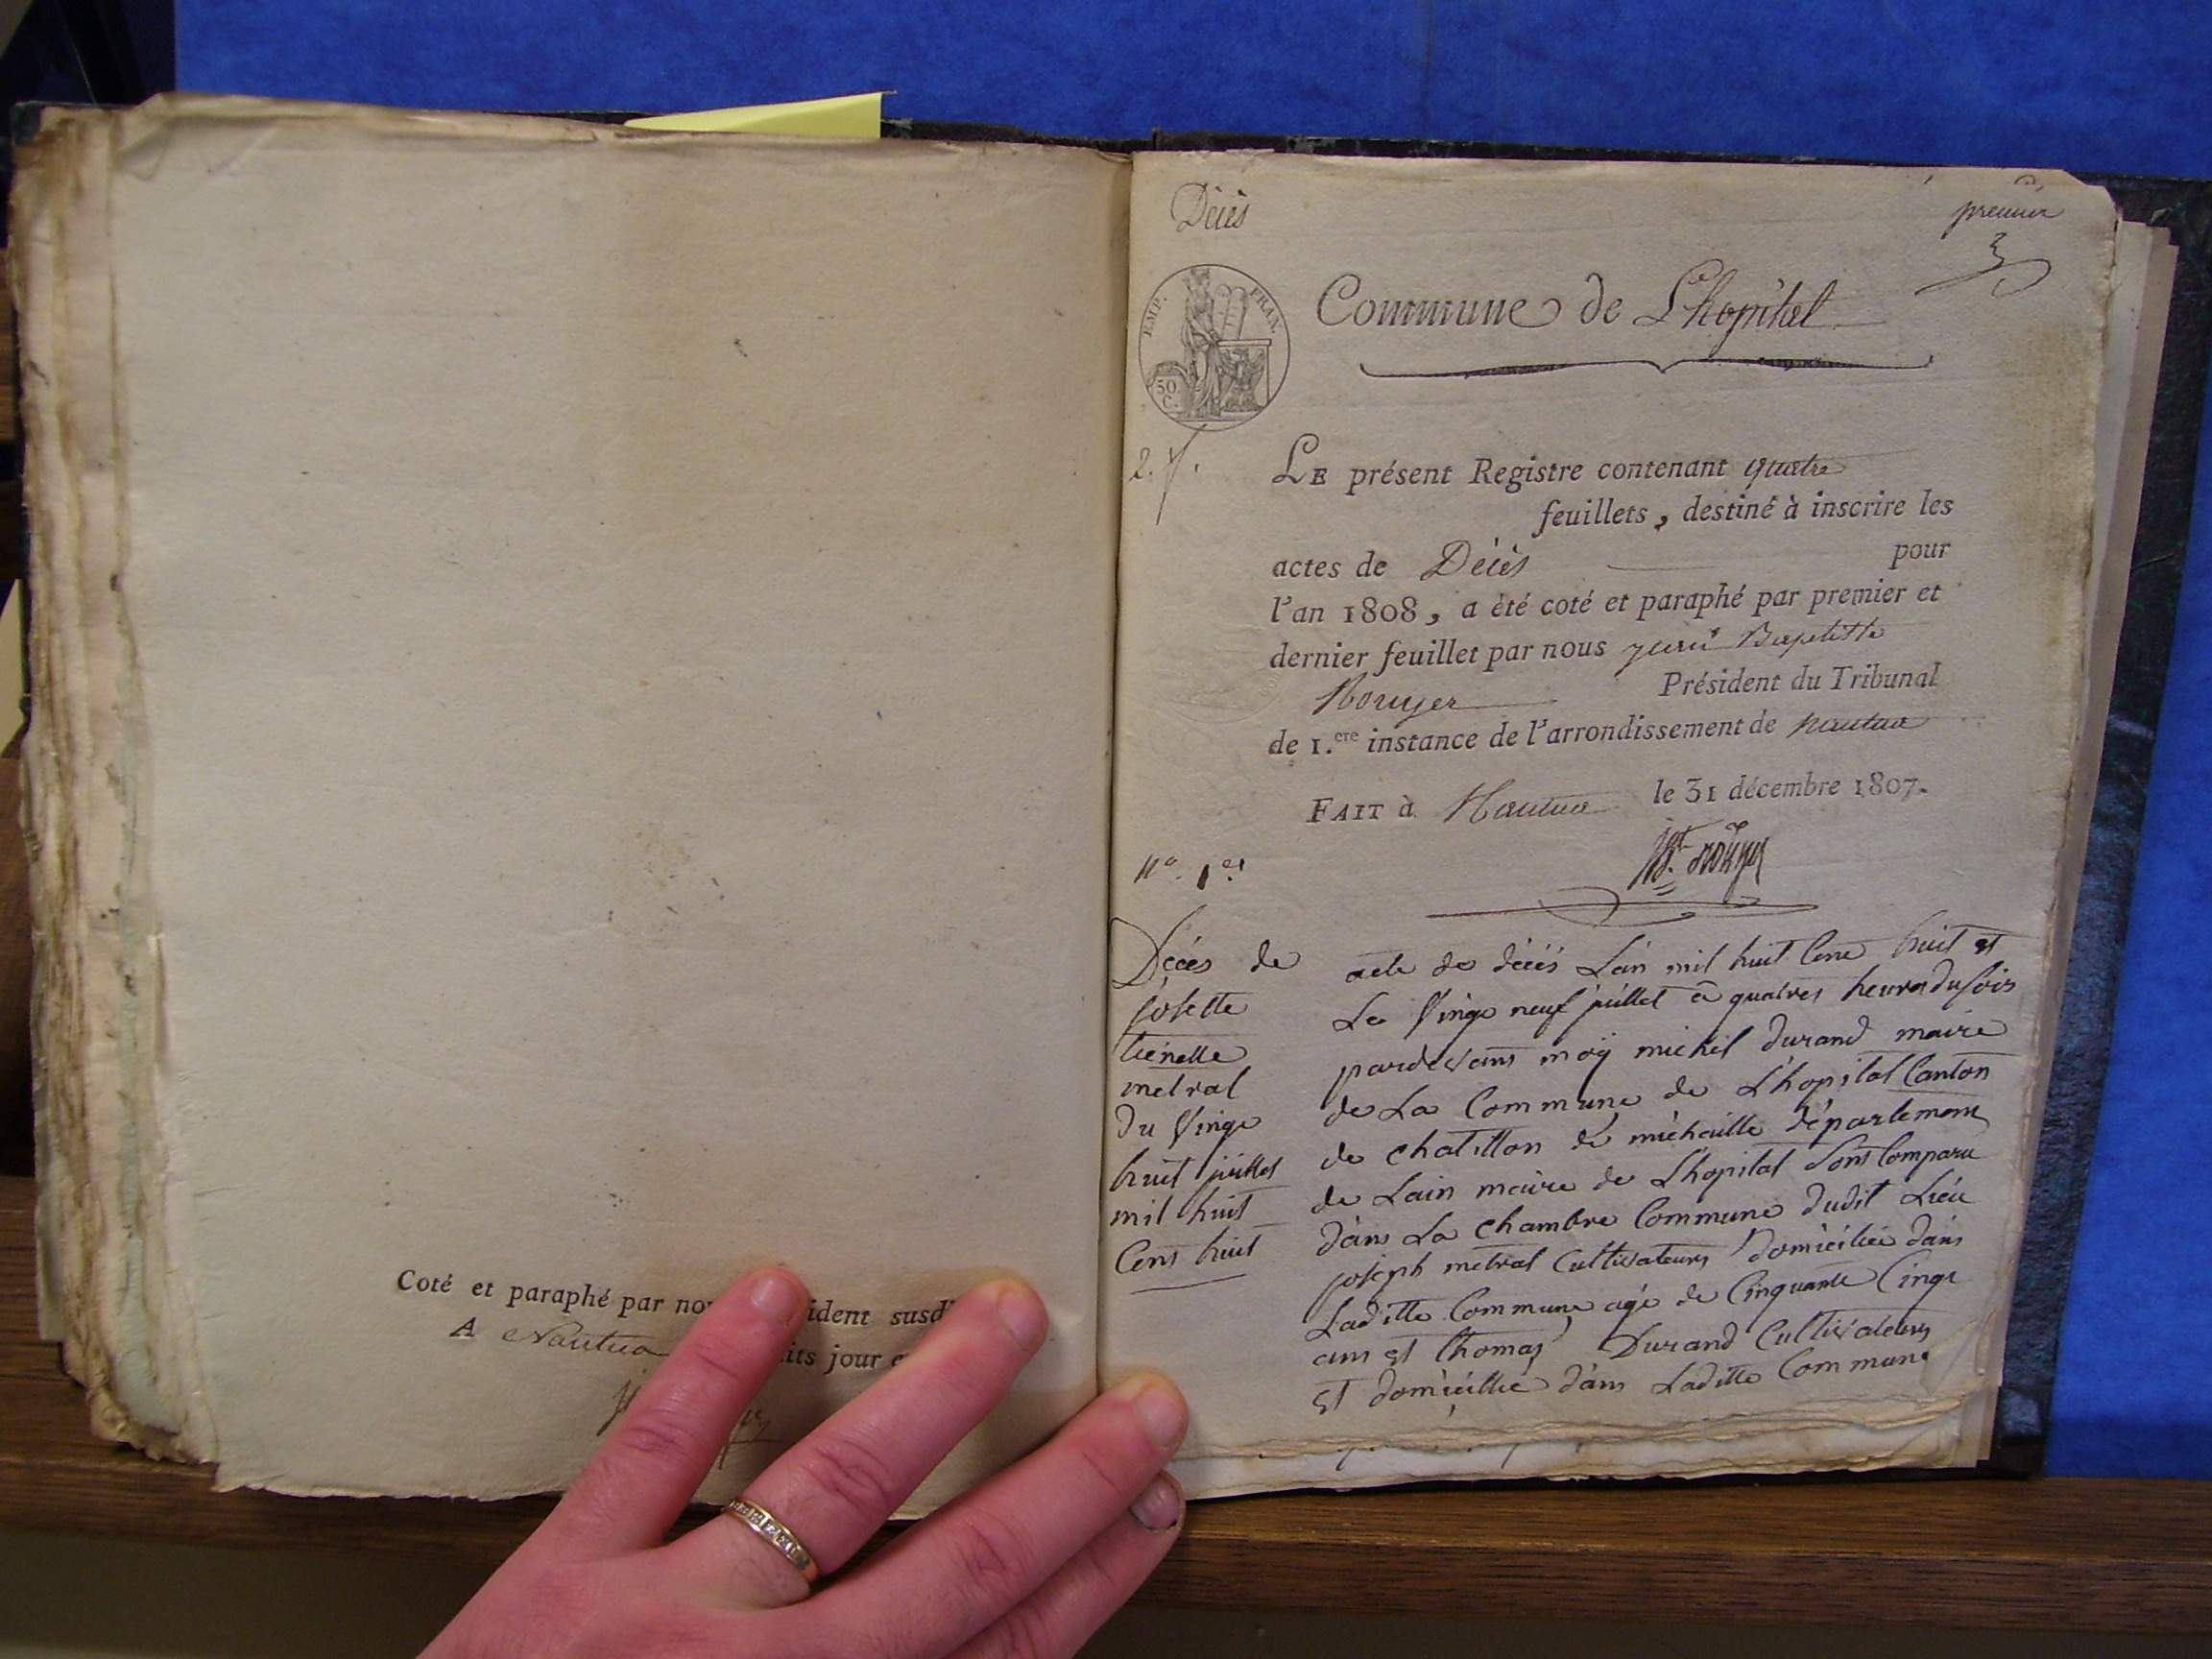 Coté et paraphé par
ident susd
A Nantua
its jour
Décès
premier
EMP. FRAN.
50 C.
Commune de L'hopital
2.
LE présent Registre contenant quatre
feuillets, destiné à inscrire les
actes de Décès pour
l'an 1808, a été coté et paraphé par premier et
dernier feuillet par nous Baptiste
Rouyer Président du Tribunal
de 1.ere instance de l'arrondissement de nantua
FAIT à Nantua le 31 décembre 1807.
jB.t rouyer
n.o 1.er
Décés de
josette
metral
du Vingt
huit juillet
mil huit
Cent huit
acte de décés L'an mil huit Cent huit et
Le Vingt neuf juillet a quatres heures du soir
pardevant moy michel durand maire
de La Commune de L'hopital Canton
de chatillon de michaille département
de Lain maire de L'hopital sont Comparu
dans La chambre Commune dudit Lieu
joseph metral Cultivateurs domicilié dans
Laditte Commune agé de Cinquante Cinq
ans et thomas Durand Cultivateurs
et domicillié dans Laditte Commune